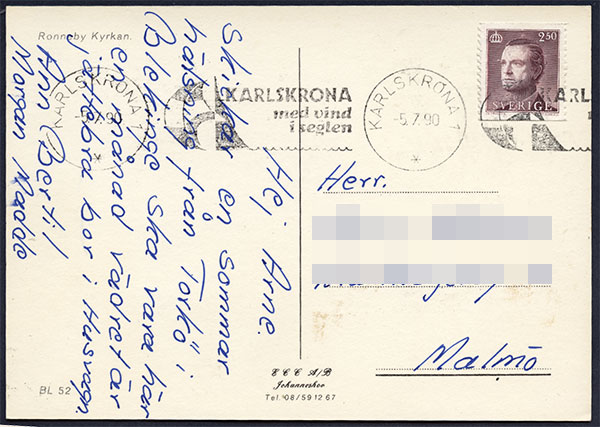 Ronneby Kyrkan.
Hej Arne.
Skickar en sommar
hälsning från Torkö i
Blekinge ska vara här
en månad vädret är
jättebra bor i Husvagn.
Ann Bertil
Morgan Madde
BL 52
KARLSKRONA 1
-5.7.90
KARLSKRONA
med vind
i seglen
KARLSKRONA 1
-5.7.90
KARL
2.50
SVERIGE
Herr.
Malmö
E C C A/B
Johanneshov
Tel. 08/59 12 67